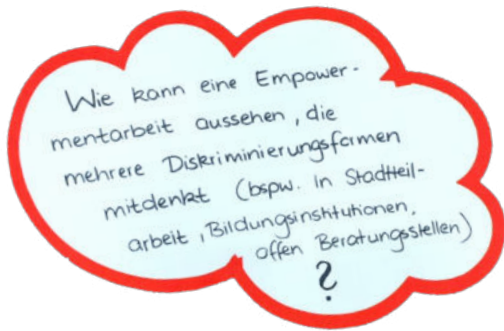 Wie kann eine Empower-
mentarbeit aussehen, die
mehrere Diskriminierungsformen
mitdenkt (bspw. in Stadtteil-
arbeit, Bildungsinstitutionen,
offen Beratungsstellen)
?